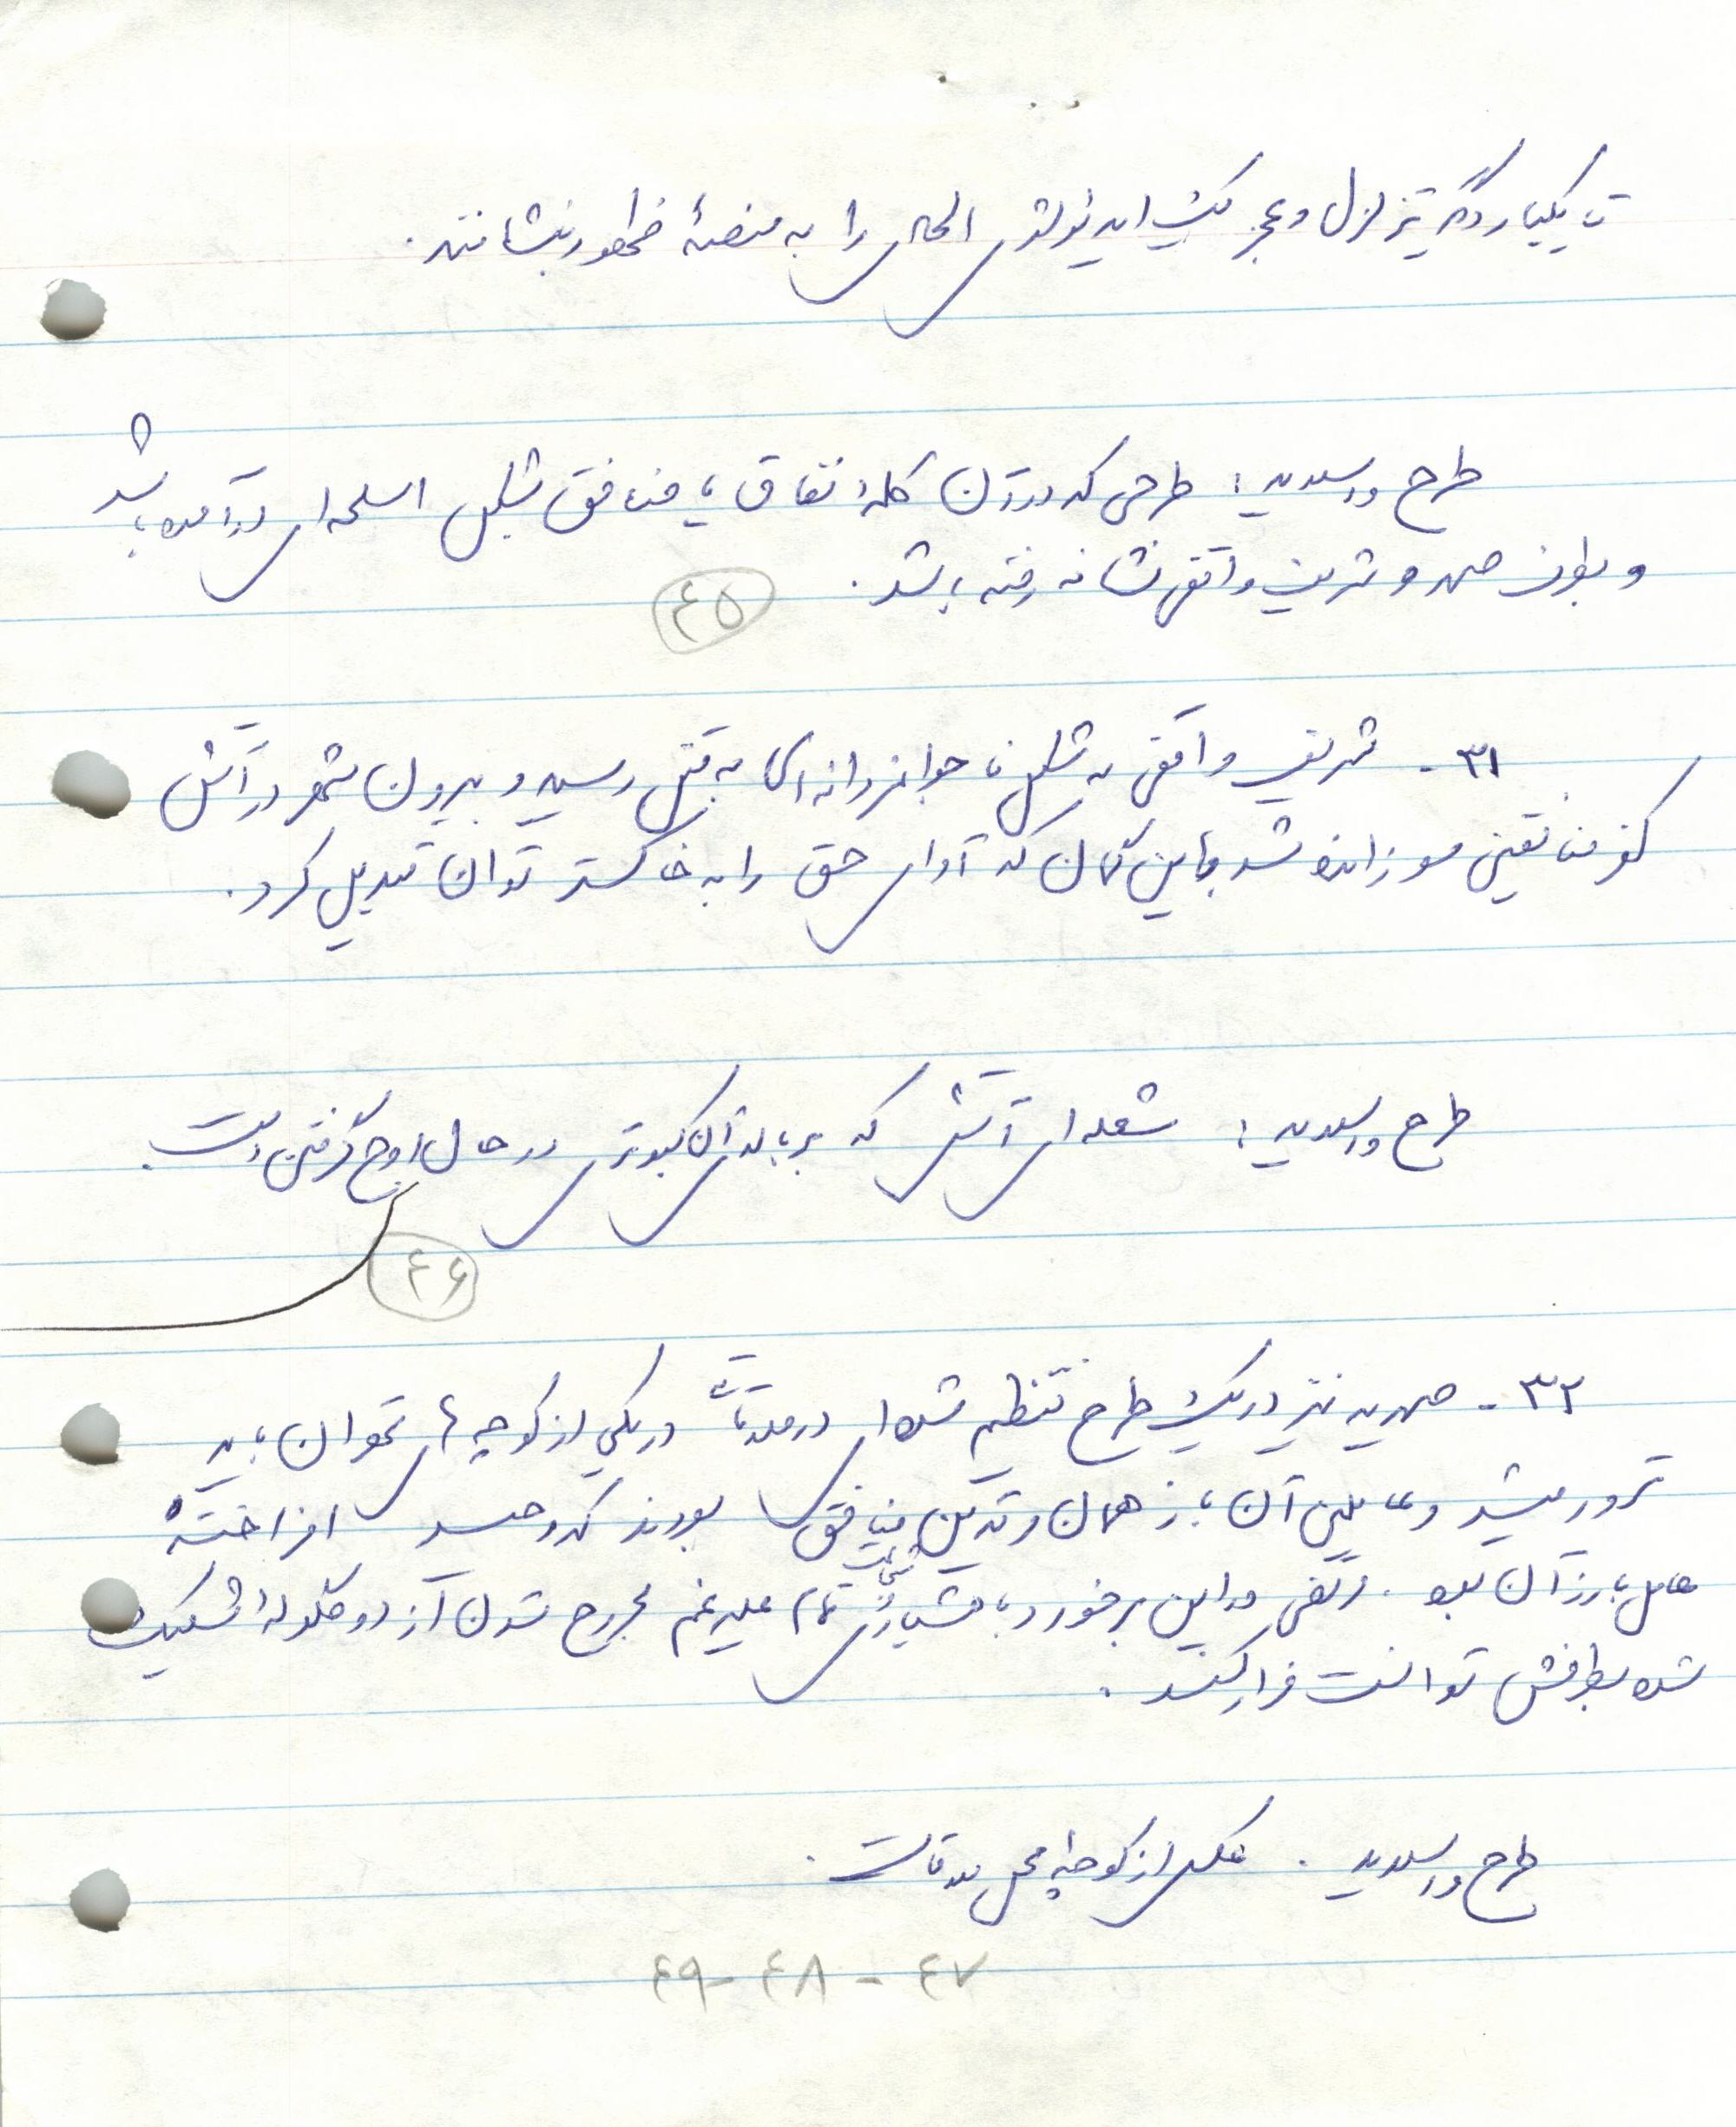 تا یکبار دگر تزلزل و عجز یک ایدئولوژی الحادی را به منصهٔ ظهور بنشانند.
طرح و اسلاید: طرحی که در آن کلمه نفاق یا منافق بشکل اسلحه‌ای درآمده باشد
و بطرف صمدیه و شریف واقفی نشانه رفته باشد.
۴۵
۳۱- شریف واقفی به شکل ناجوانمردانه‌ای به قتل رسید و بیرون شهر در آتش
کفر منافقین سوزانده شد باین گمان که آوای حق را به خاکستر توان تبدیل کرد.
طرح و اسلاید: شعله‌ای آتشی که بر بالای آن کبوتری در حال اوج گرفتن است.
۴۶
۳۲- صمدیه نیز در یک طرح تنظیم شده‌ای در ملاقات در یکی از کوچه‌های تهران باید
ترور میشد و عاملین آن باز همان مرتدین منافقی بودند که وحید افراخته
عامل بارز آن بود. مرتضی در این برخورد با هشیاری تمام علیرغم مجروح شدن از دو گلوله شلیک
شده بطرفش توانست فرار کند.
طرح و اسلاید. عکسی از کوچه محل ملاقات.
۴۷ - ۴۸ - ۴۹